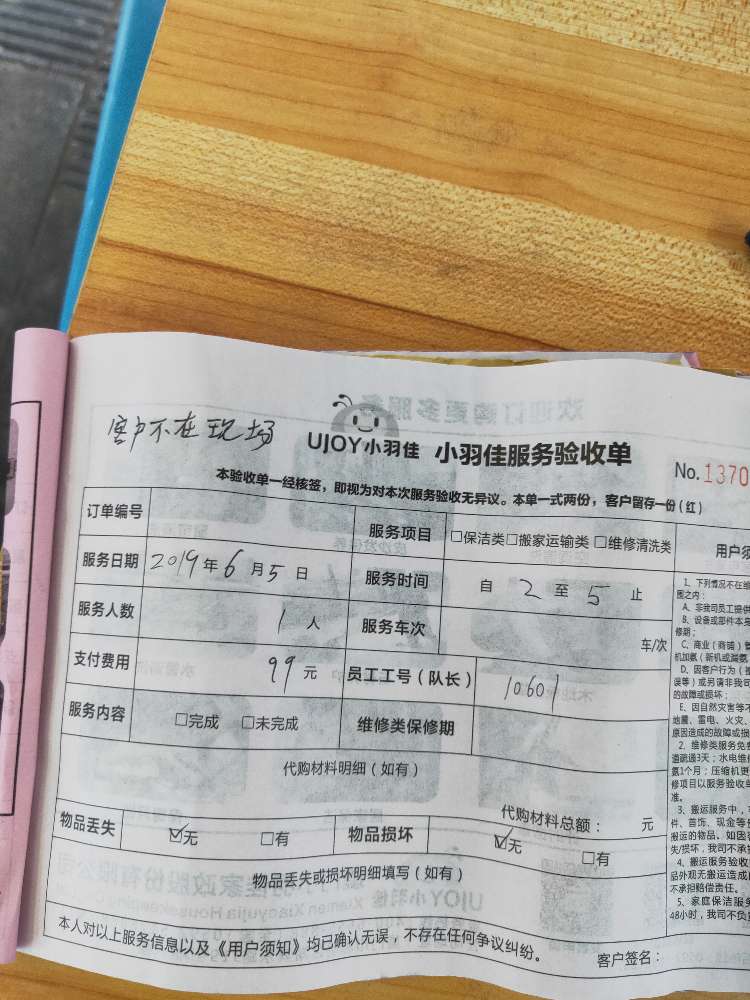 客户不在现场
UJOY小羽佳 小羽佳服务验收单
No.1370
本验收单一经核签，即视为对本次服务验收无异议。本单一式两份，客户留存一份（红）
订单编号 服务项目 □保洁类□搬家运输类 □维修清洗类
服务日期 2019年6月5日 服务时间 自 2 至 5 止
服务人数 1 人 服务车次 车/次
支付费用 99元 员工工号（队长） 10601
服务内容 □完成 □未完成 维修类保修期
代购材料明细（如有）
代购材料总额： 元
物品丢失 ☑无 □有 物品损坏 ☑无 □有
物品丢失或损坏明细填写（如有）
本人对以上服务信息以及《用户须知》均已确认无误，不存在任何争议纠纷。 客户签名：
用户须
1、下列情况不在维
围之内：
A、非我司员工提供
B、设备或部件本身
修期；
C、商业（商铺）
机加氨（新机或漏氨
D、因客户行为（
误等）或另请非我司
的故障或损坏；
E、因自然灾害等不
地震、雷电、火灾、
原因造成的故障或损
2、维修类服务免
道疏通3天；水电维
氨1个月；压缩机更
修项目以服务验收单
准。
3、搬运服务中，
件、首饰、现金等
搬运的物品。如因
失/损坏，我司不承
4、搬运服务验收
品外观无搬运造成
不承担赔偿责任。
5、家庭保洁服务
48小时，我司不负